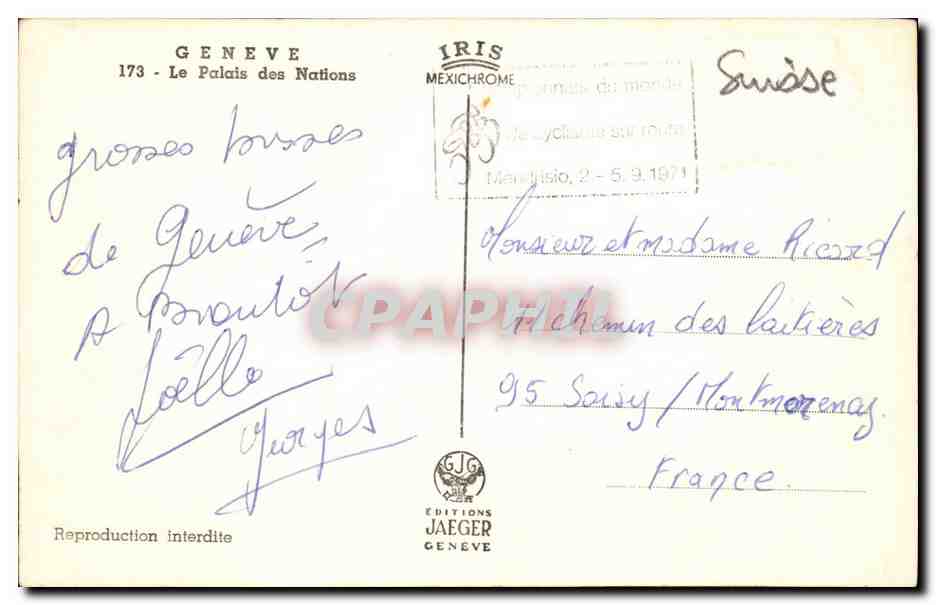 GENEVE
173 - Le Palais des Nations
IRIS
MEXICHROME
Suisse
du monde
de cyclisme sur route
Mendrisio, 2 - 5.9.1971
grosses bisses
de Genève
A Bientôt
Joëlle
Monsieur et madame Ricard
11 chemin des laitières
95 Soisy / Montmorency
France
CPAPHIL
GJG
EDITIONS
JAEGER
GENEVE
Reproduction interdite